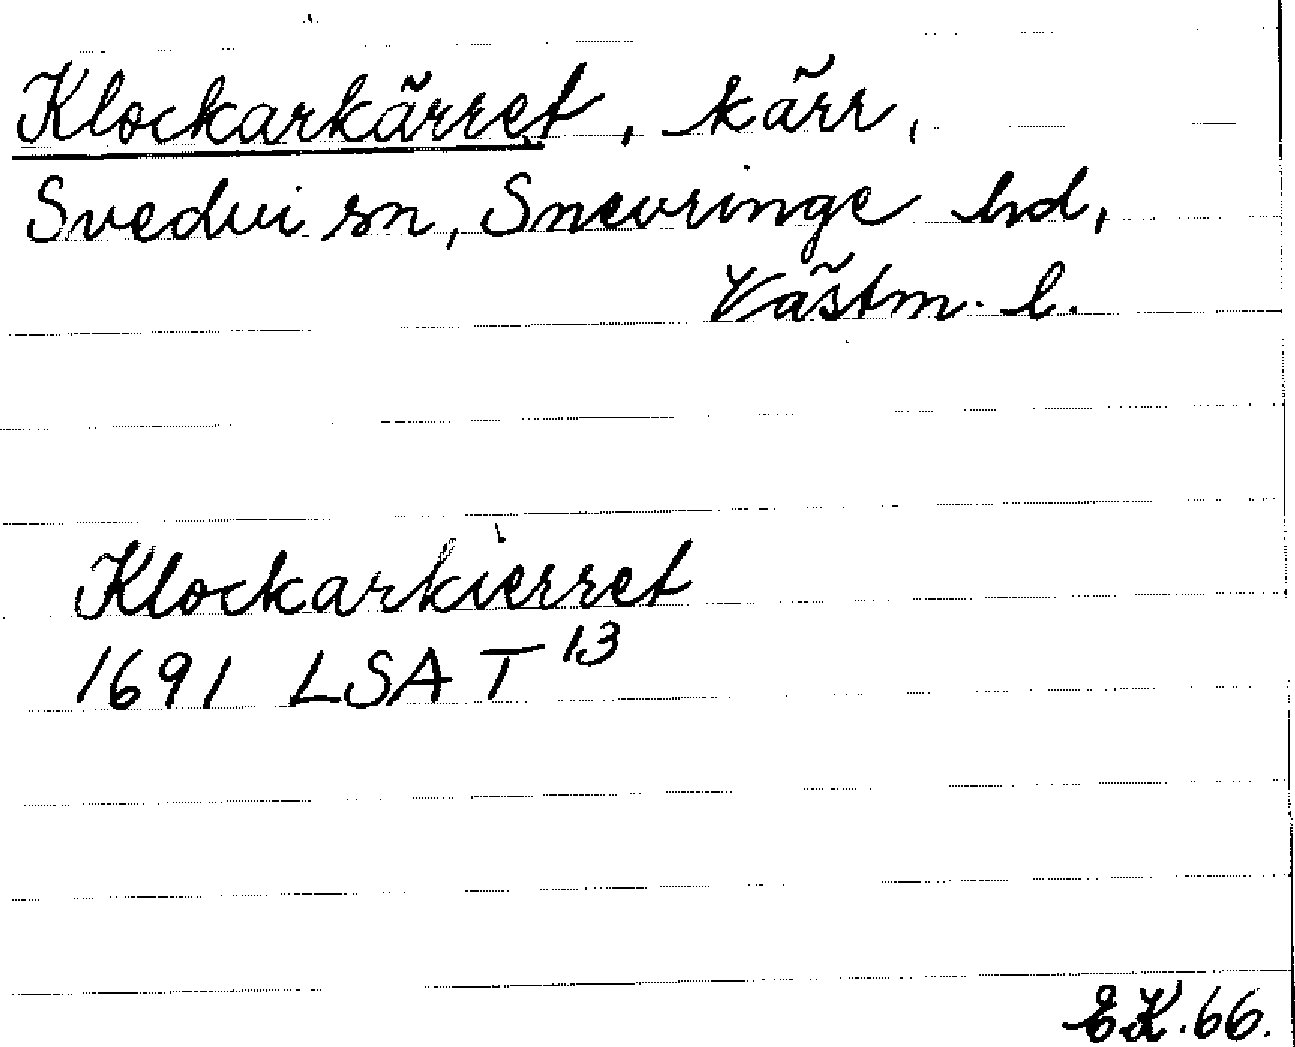 Klockarkärret, kärr,
Svedvi sn, Snevringe hd,
Västm. l.
Klockarkierret
1691 LSA T 13
E.K. 66.